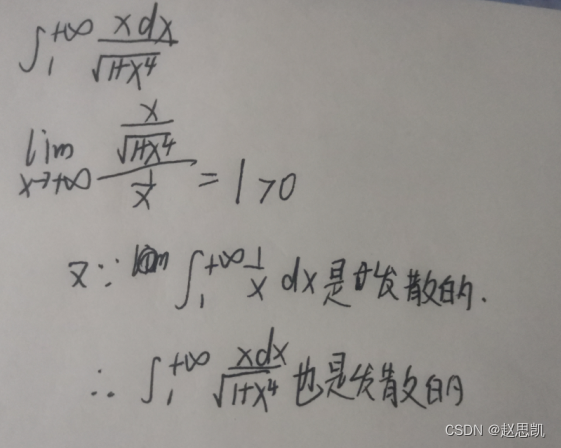 ∫₁^{+∞} xdx/√(1+x⁴)
lim_{x→+∞} (x/√(1+x⁴))/(1/x) = 1 > 0
又∵ ∫₁^{+∞} 1/x dx是发散的.
∴ ∫₁^{+∞} xdx/√(1+x⁴) 也是发散的
CSDN @赵思凯